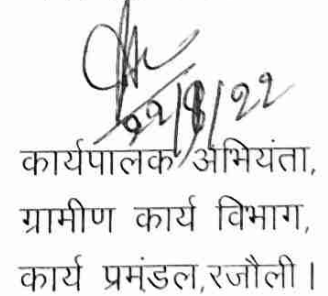 22/8/22
कार्यपालक अभियंता,
ग्रामीण कार्य विभाग,
कार्य प्रमंडल,रजौली।